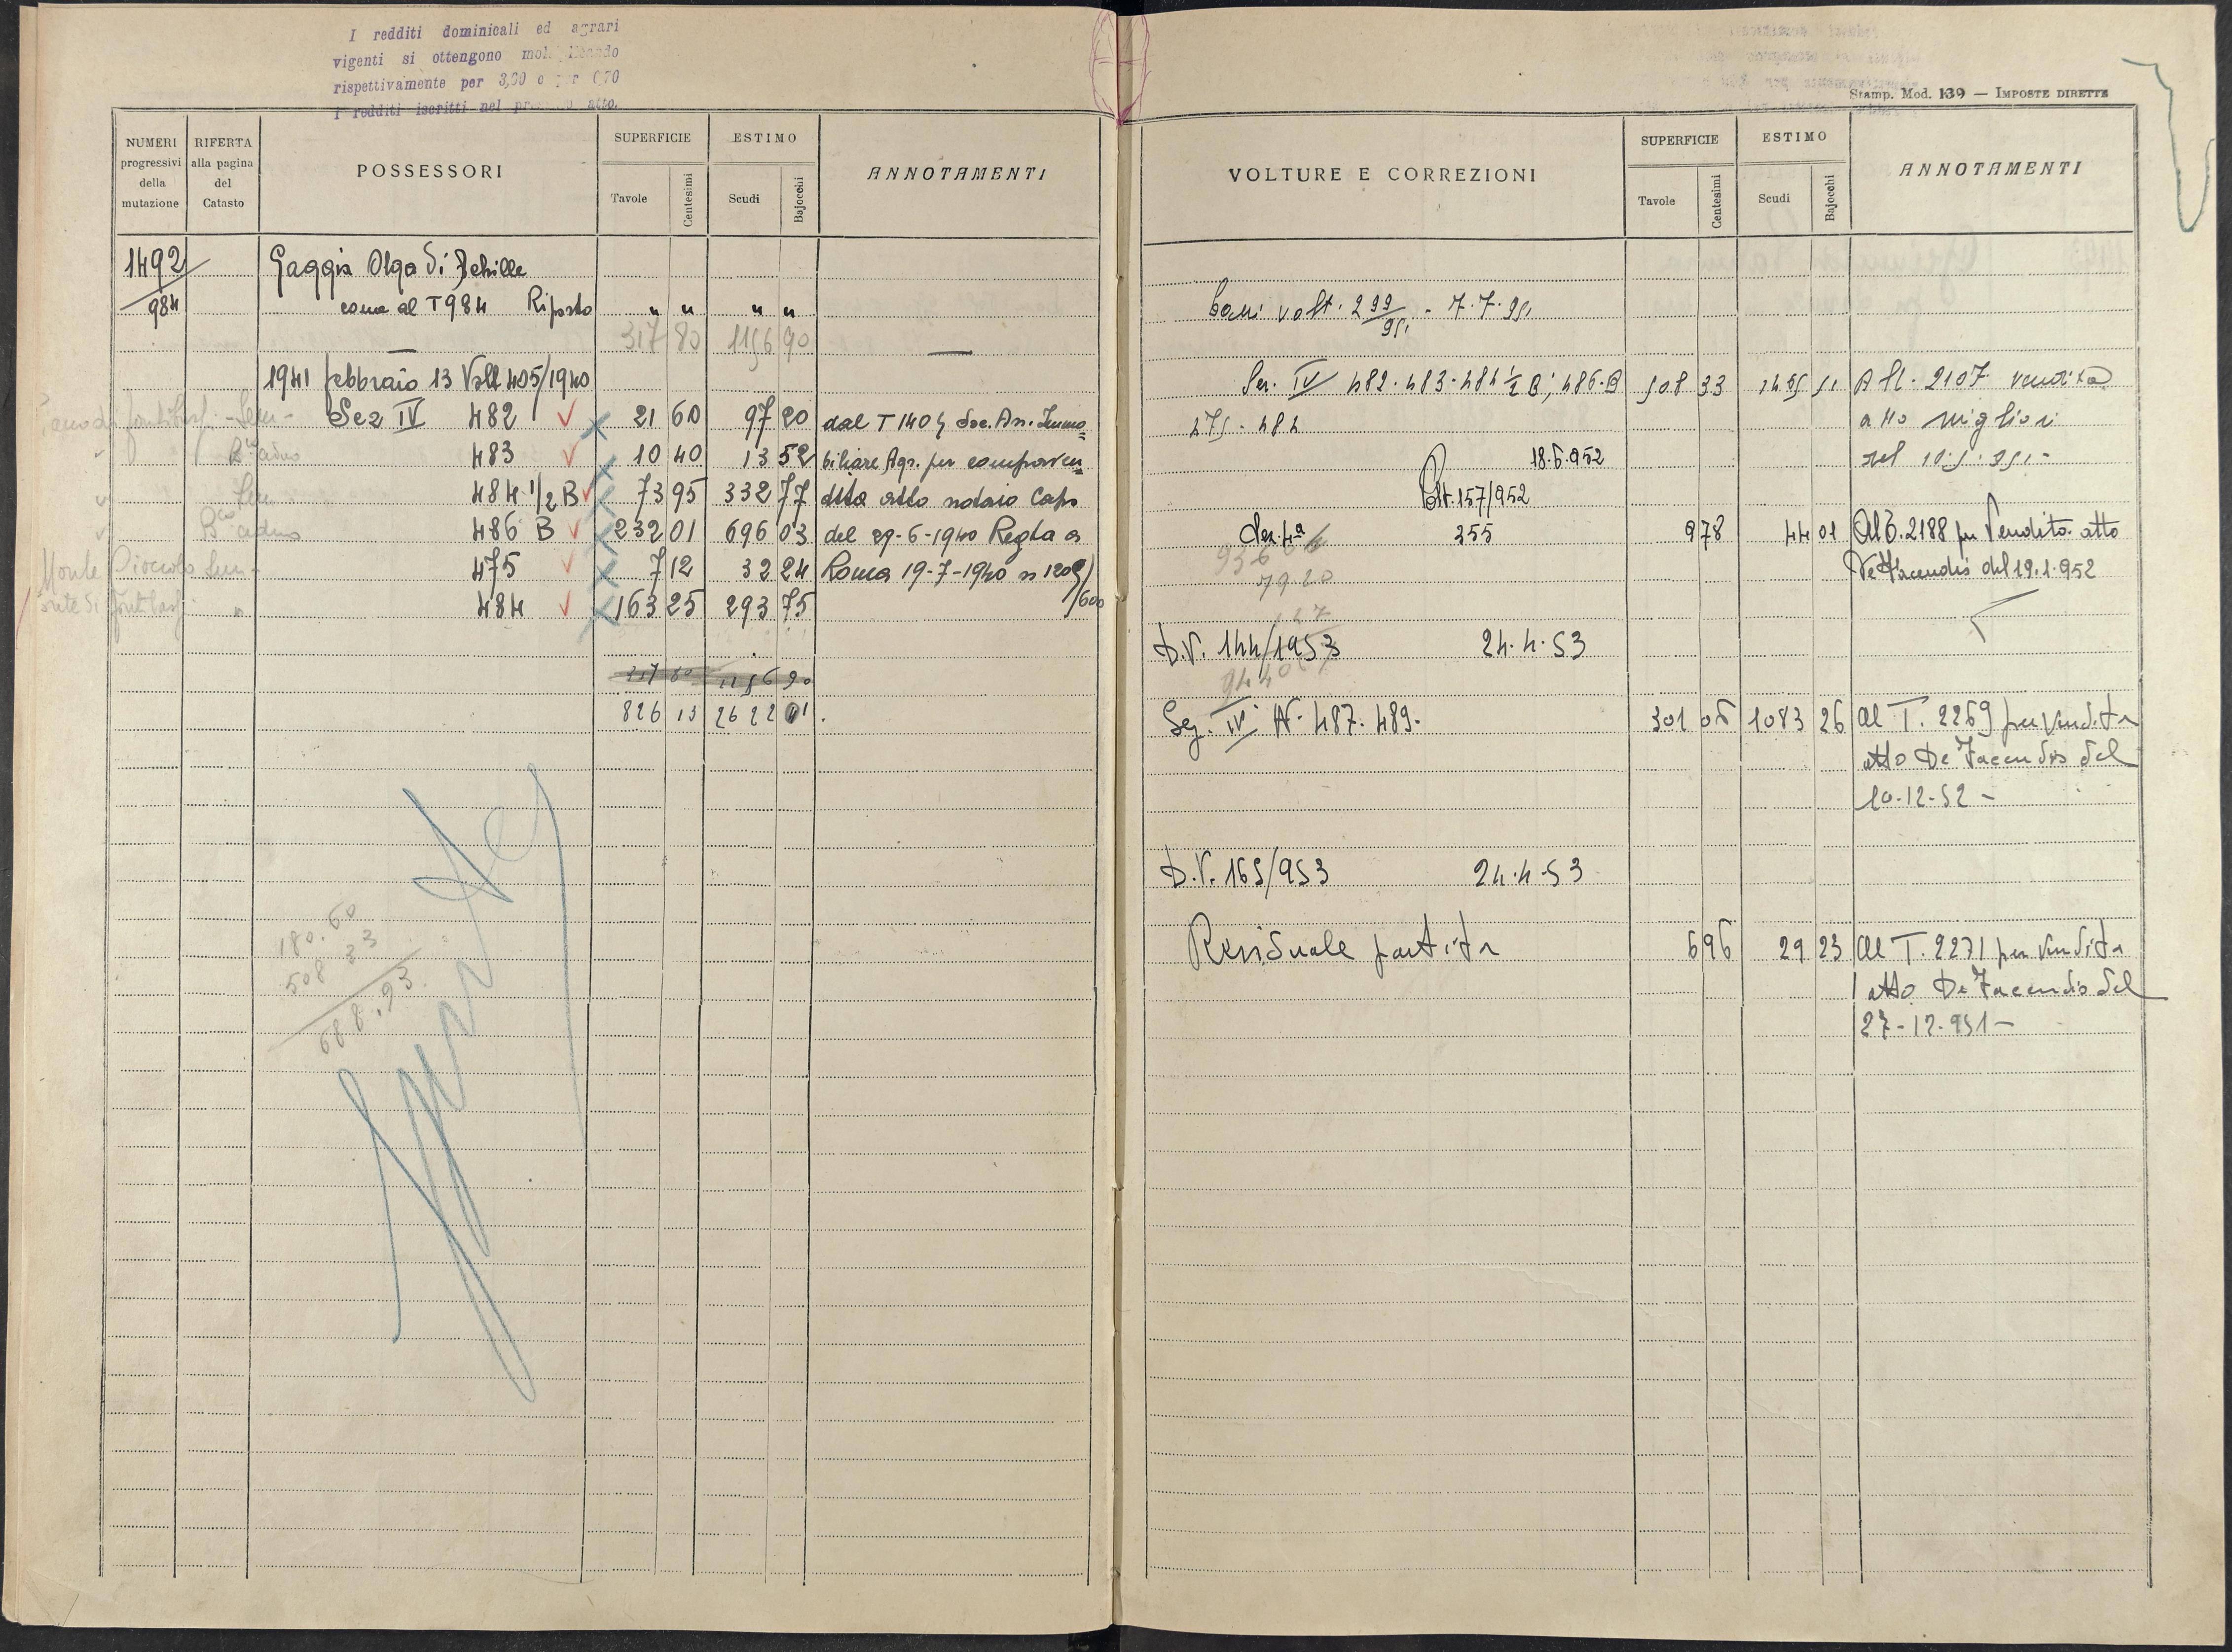 I redditi dominicali ed agrari
vigenti si ottengono
rispettivamente per 3,30
I redditi iscritti nel atto.
NUMERI progressivi della mutazione
RIFERTA alla pagina del Catasto
POSSESSORI
SUPERFICIE
Tavole Centesimi
ESTIMO
Scudi Bajocchi
ANNOTAMENTI
1492 Gaggia Olga di Achille
984 come al T 984 Riporto " " " "
317 80 1156 90
1941 febbraio 13 Volt 405/1940
Sez IV 482 21 60 97 20 dal T 1404 Soc. An. Immo
483 10 40 13 52 biliare Agr. per compraven
484 1/2 B 73 95 332 77 dita atto notaio Capo
486 B 232 01 696 03 del 29-6-1940 Regta a
Monte 475 7 12 32 24 Roma 19-7-1940 n 1209/
484 163 25 293 75 /600
317 80 1156 90
826 13 2622 01
180.60
508 33
688.93
Stamp. Mod. 139 — IMPOSTE DIRETTE
VOLTURE E CORREZIONI
SUPERFICIE
Tavole Centesimi
ESTIMO
Scudi Bajocchi
ANNOTAMENTI
volt. 299/951 - 7.7.951
Sez. IV 482-483-484 1/2 B; 486-B 508 33 1465 51 Al 2107 vendita
475-484 atto Migliori
18.6.952 del 10.5.951-
Volt. 157/952
Sez. 4ª 355 9 78 44 01 Al T. 2188 per Vendita atto
De Facendis del 19.1.952
7920
D.V. 144/1953 24.4.53
Sez. IV N. 487. 489. 301 06 1083 26 Al T. 2269 per vendita
atto De Facendis del
10-12-52-
D.V. 165/953 24.4.53
Residuale partita 6 96 29 23 Al T. 2271 per vendita
atto De Facendis del
27-12-951-